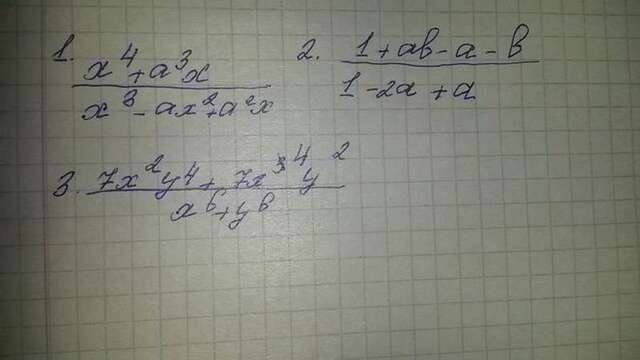 1. x⁴+a³x / x³-ax²+a²x
2. 1+ab-a-b / 1-2a+a
3. 7x²y⁴+7x⁴y² / x⁶+y⁶